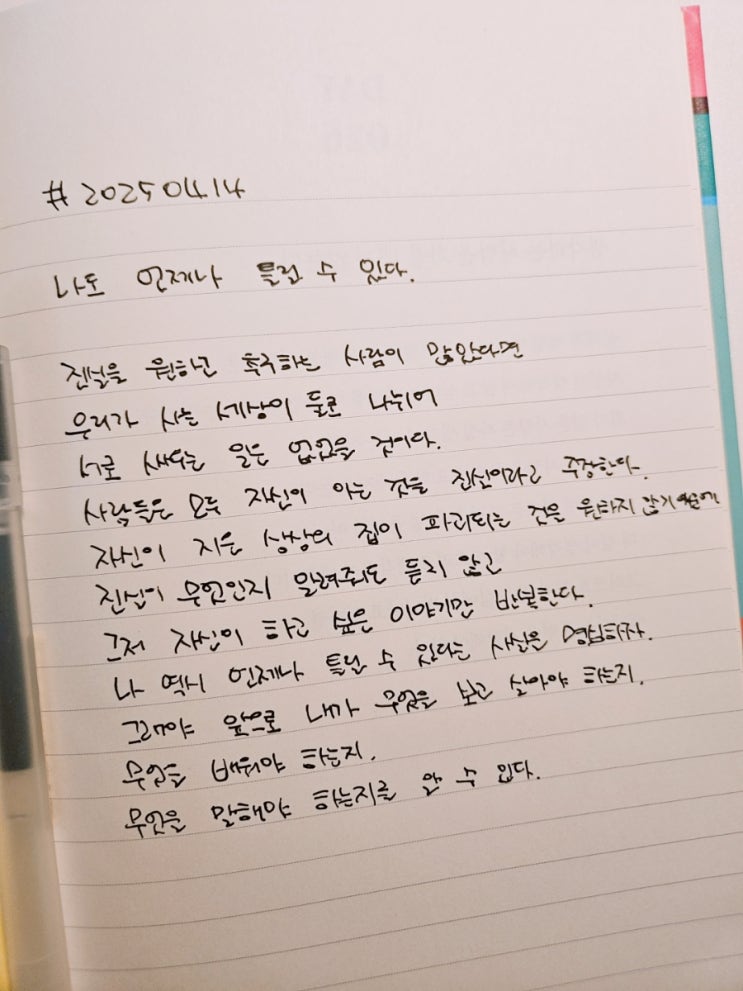 # 20250414
나도 언제나 틀릴 수 있다.
진실을 원하고 추구하는 사람이 많았다면
우리가 사는 세상이 둘로 나뉘어
서로 싸우는 일은 없었을 것이다.
사람들은 모두 자신이 아는 것을 진실이라고 주장한다.
자신이 지은 상상의 집이 파괴되는 것을 원하지 않기 때문에
진실이 무엇인지 알려줘도 듣지 않고
그저 자신이 하고 싶은 이야기만 반복한다.
나 역시 언제나 틀릴 수 있다는 사실을 명심하자.
그래야 앞으로 내가 무엇을 보고 살아야 하는지.
무엇을 배워야 하는지.
무엇을 말해야 하는지를 알 수 있다.